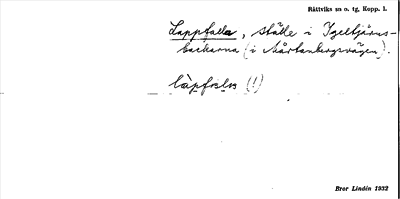 Rättviks sn o. tg, Kopp. l.
Lappfalla, ställe i Igeltjärns-
backarna (i Mårtanbergsvägen).
(!)
Bror Lindén 1932